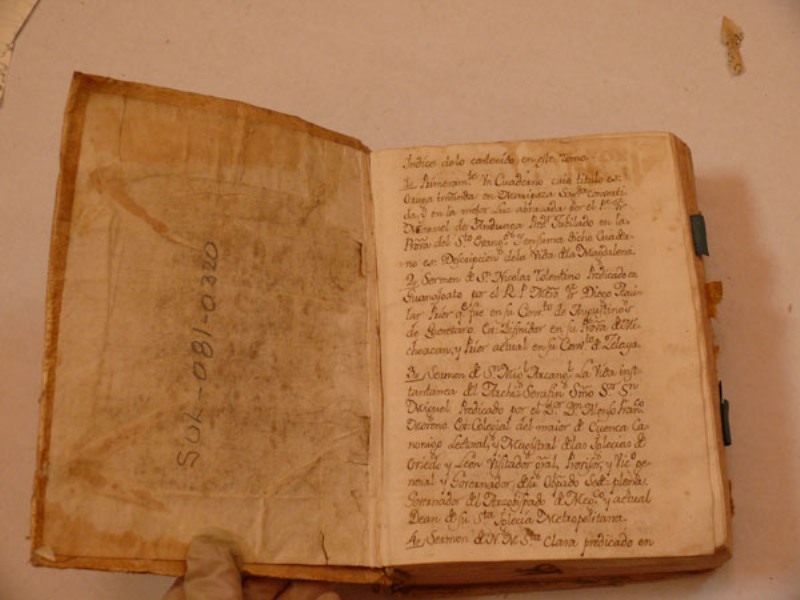 SUL-081-0320
Indice de lo contenido en este tomo.
Primeram.te Vn Cuaderno cuio titulo es:
Oveja en Mariposa converti-
da, y en la mejor Luz abrazada por el P. Fr
Manuel de Pred.r Jubilado en la
Prov.a del S.to Evang.o Y en suma dicho Cuader-
no es: Descripcion de la Vida de la Magdalena.
2.o Sermon de S.n Nicolas Tolentino Predicado en
Guanajoato por el R. P. Mtro Fr Diego
Prior q.e fue en su Conv.to de Augustinos
de Queretaro Ex-Difinidor en su Prov.a de Mi-
choacan, y Prior actual en su Conv.to de Zelaya.
3.o Sermon de S.n Mig.l Arcang.l La Vida ins-
tantanea del Serafin S.mo S.or S.n
Miguel Predicado por el D.or D.n Alonso Fran.co
Moreno Ex-Colegial del maior de Cuenca Ca-
nonigo Lectoral, y Magistral de las Iglecias de
Oviedo y Leon Visitador gral, Provisor, y Vic.o ge-
neral y Governador de su Obpado Sede plena
Governador del Arzobispado de Mex.co y actual
Dean de su S.ta Iglecia Metropolitana.
4.o Sermon de N. M. S.ta Clara predicado en